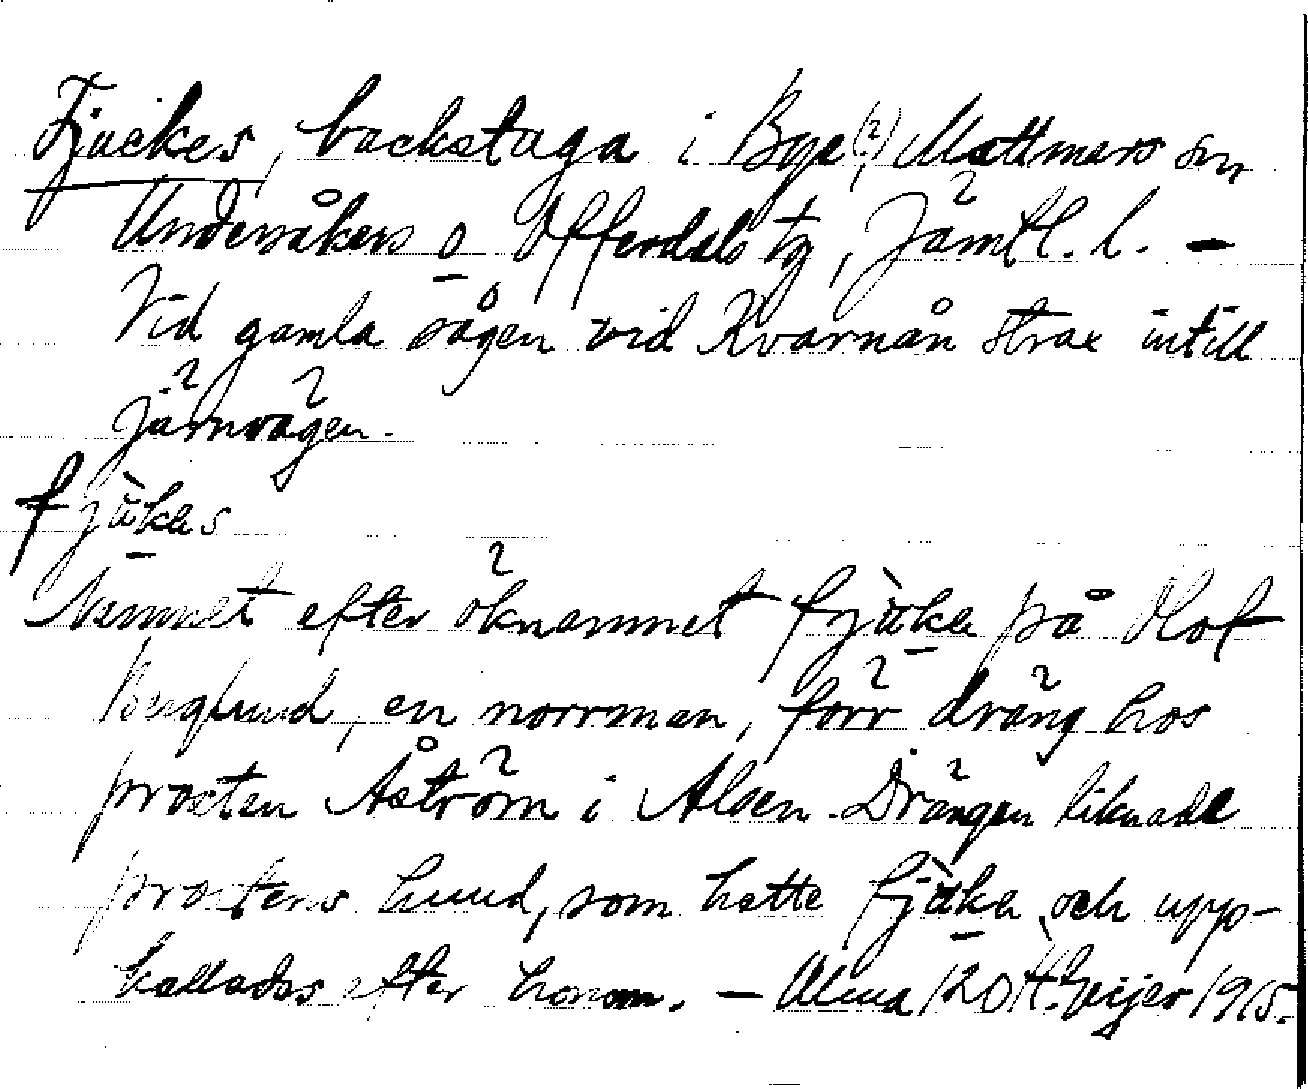 Fjackes, backstuga i Bye (?), Mattmars sn
Undersåkers o Offerdals tg, Jämtl. l. –
Vid gamla sågen vid Kvarnån strax intill
järnvägen.
fjàkas
Namnet efter öknamnet fjàka på Olof
Berglund, en norrman, förr dräng hos
prosten Åström i Alsen. Drängen liknade
prostens hund, som hette fjàka och upp-
kallades efter honom. – Geijer 1915.